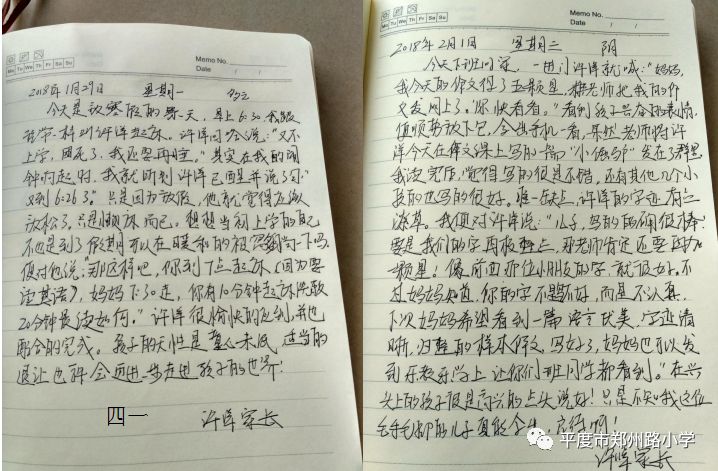 Memo No.
Mo Tu We Th Fr Sa Su
Date / /
2018年1月29日 星期一 多云
今天是放寒假的第一天，早上6:30我跟
往常一样叫许洋起床。许洋闷声说："又不
上学，困死了，我还要再睡。"其实在我的闹
钟响起时，我就听到许洋已醒并说了句"
又到6:26了。"只是因为放假，他就觉得应该
放松了，只是懒床而已。想想当初上学的自己
不也是到了假期可以在暖和的被窝
便对他说："那这样吧，你到7点起床（因为要
读英语），妈妈7:30走，你有10分钟起床洗漱
20分钟晨读如何。"许洋很愉快的答到，并也
配合的完成。孩子的天性是 适当的
退让也许会更进一步走进孩子的世界！
四一 许洋家长
Memo No.
Mo Tu We Th Fr Sa Su
Date / /
2018年2月1日 星期三 阴
今天下班回家，一进门许洋就喊："妈妈，
我今天的作文得了五颗星，老师把我的作
文发网上了。你快看看。"看到孩子兴奋的表情，
值顺势放下包，拿出手机一看，果然老师将许
洋今天在作文课上写的一篇"小 "发在了群里，
我读完后，觉得写的很是不错，还有其他几个小
孩的也写的很好。唯一缺点，许洋的字迹有点
潦草。我便对许洋说："儿子，写的的确很棒！
要是我们的字再板整点，那老师肯定还要再加
颗星！像前面几位小朋友的字，就很好。不
过妈妈知道，你的字不是不好，而是不认真，
下次妈妈希望看到一篇语言优美，字迹清
晰，归整的样本作文，写好了，妈妈也可以发
到乐教乐学上让你们班同学都看到。"在兴
头上的孩子很是高兴的点头说好！只是不知我这位
毛毛 的儿子 ，
许洋家长
平度市郑州路小学